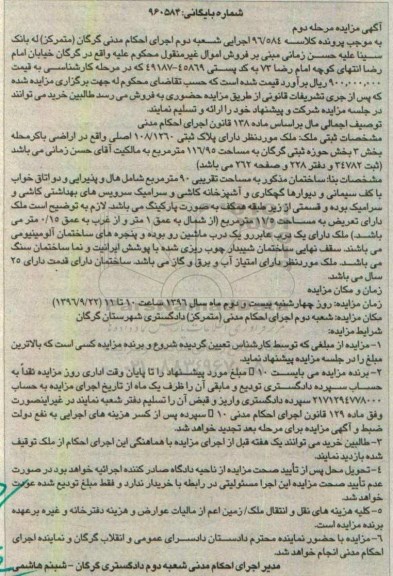 شماره بایگانی: ۹۶۰۵۸۴
آگهی مزایده مرحله دوم
به موجب پرونده کلاسه ۹۶/۵۸۴ اجرایی شعبه دوم اجرای احکام مدنی گرگان (متمرکز) له بانک
سینا علیه حسن زمانی مبنی بر فروش اموال غیرمنقول محکوم علیه واقع در گرگان خیابان امام
رضا انتهای کوچه امام رضا ۷۳ به کد پستی ۴۵۸۶۹-۴۹۱۸۷ که در مرحله کارشناسی به قیمت
۹۰۰,۰۰۰,۰۰۰ ریال برآورد قیمت شده است که حسب تقاضای محکوم له جهت برگزاری مزایده شده
که پس از جری تشریفات قانونی از طریق مزایده حضوری به فروش می رسد طالبین خرید می توانند
در جلسه مزایده شرکت و پیشنهاد خود را ارائه و تسلیم نمایند.
توصیف اجمالی مال براساس ماده ۱۳۸ قانون اجرای احکام مدنی
مشخصات ثبتی ملک: ملک موردنظر دارای پلاک ثبتی ۱۰۸/۱۳۶۰ اصلی واقع در اراضی باکرمحله
بخش ۳ بخش حوزه ثبتی گرگان به مساحت ۱۱۶/۹۵ مترمربع به مالکیت آقای حسن زمانی می باشد
(ثبت ۳۴۷۸۲ و دفتر ۲۷۸ و صفحه ۲۶۲ می باشد)
مشخصات بنا: ساختمان مذکور به مساحت تقریبی ۹۰ مترمربع شامل هال و پذیرایی و دو اتاق خواب
با کف سیمانی و دیوارها گچکاری و آشپزخانه کاشی و سرامیک سرویس های بهداشتی کاشی و
سرامیک بوده و قسمتی از زیر طبقه همکف به صورت پارکینگ می باشد. لازم به توضیح است ملک
دارای تعریض به مساحت ۱۱/۵ مترمربع (از شمال به عمق ۱ متر و از غرب به عمق ۰/۱۵ متر می
باشد) ملک دارای یک درب عابررو یک درب ماشین رو بوده و پنجره های ساختمان آلومینیومی
می باشند. سقف نهایی ساختمان شیبدار چوب ریزی شده با پوشش ایرانیت و نما ساختمان سنگ
می باشد. ملک موردنظر دارای امتیاز آب و برق و گاز می باشد. ساختمان دارای قدمت دارای ۲۵
سال می باشد.
زمان و مکان مزایده
زمان مزایده: روز چهارشنبه بیست و دوم ماه سال ۱۳۹۶ ساعت ۱۰ تا ۱۱ (۱۳۹۶/۹/۲۲)
مکان مزایده: شعبه دوم اجرای احکام مدنی (متمرکز) دادگستری شهرستان گرگان
شرایط مزایده:
۱- مزایده از مبلغی که توسط کارشناس تعیین گردیده شروع و برنده مزایده کسی است که بالاترین
مبلغ را در جلسه مزایده پیشنهاد نماید.
۲- برنده مزایده می بایست ۱۰ مبلغ مورد پیشنهاد را تا پایان وقت اداری روز مزایده نقدا به
حساب سپرده دادگستری تودیع و مابقی آن را ظرف یک ماه از تاریخ اجرای مزایده به حساب
۲۱۷۱۲۹۴۷۷۸۰۰۰ سپرده دادگستری واریز و قبض آن را تسلیم دفتر شعبه نمایند در غیراینصورت
وفق ماده ۱۲۹ قانون اجرای احکام مدنی ۱۰ سپرده پس از کسر هزینه های اجرایی به نفع دولت
ضبط و آگهی مزایده برای مرحله بعد تجدید خواهد شد.
۳- طالبین خرید می توانند یک هفته قبل از اجرای مزایده با هماهنگی این اجرای احکام از ملک توقیف
شده بازدید نمایند.
۴- تحویل محل پس از تأیید صحت مزایده از ناحیه دادگاه صادر کننده اجرائیه خواهد بود در صورت
عدم تأیید صحت مزایده این اجرا مسئولیتی در رابطه با خریدار ندارد و فقط مبلغ تودیع شده عودت
خواهد شد.
۵- کلیه هزینه های نقل و انتقال ملک/ زمین اعم از مالیات عوارض و هزینه دفترخانه و غیره برعهده
برنده مزایده است.
۶- مزایده با حضور نماینده محترم دادستان دادسرای عمومی و انقلاب گرگان و نماینده اجرای
احکام مدنی انجام خواهد شد.
مدیر اجرای احکام مدنی شعبه دوم دادگستری گرگان - شبنم هاشمی